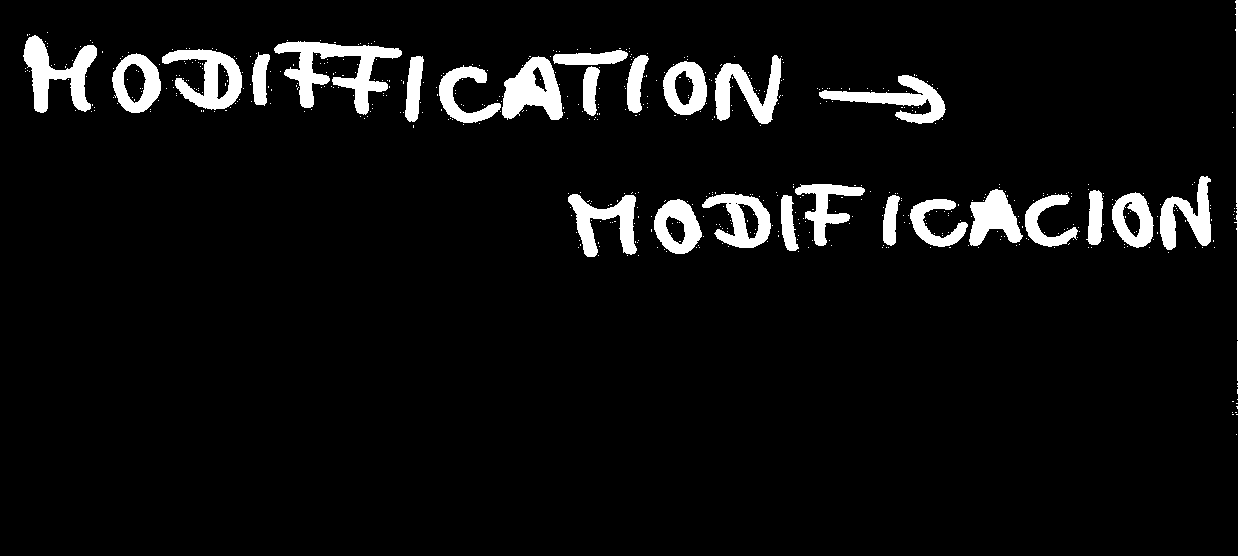 MODIFFICATION →
MODIFICACION